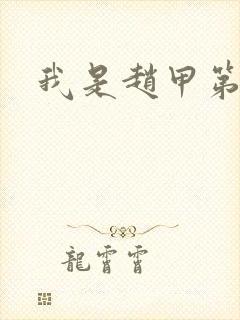 我是趙甲第
龍霄霄